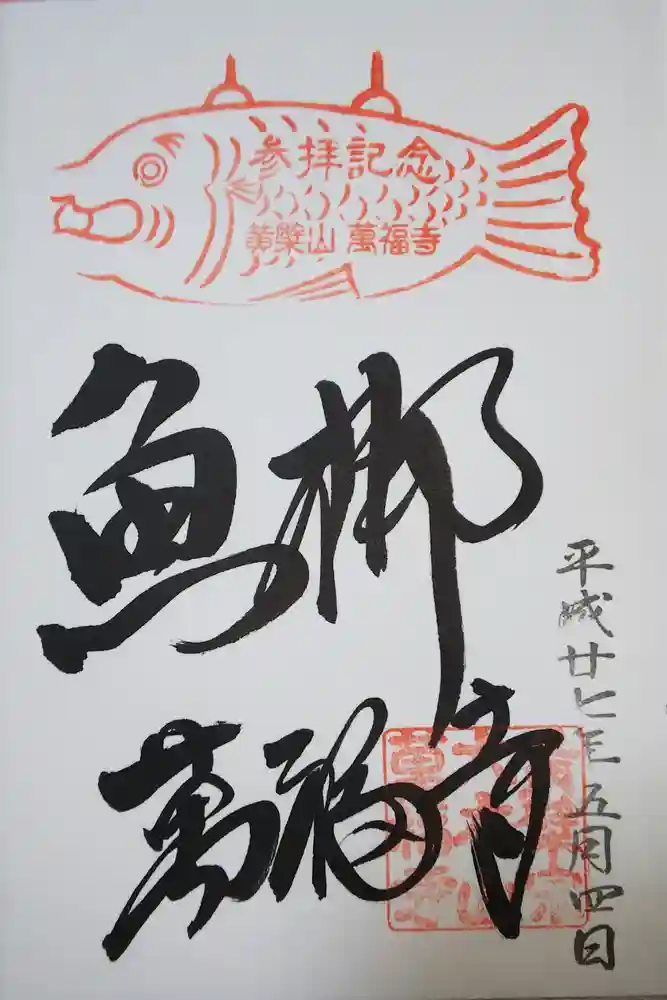 参拝記念
黄檗山 萬福寺
魚梆
萬福寺
平成廿七年五月四日